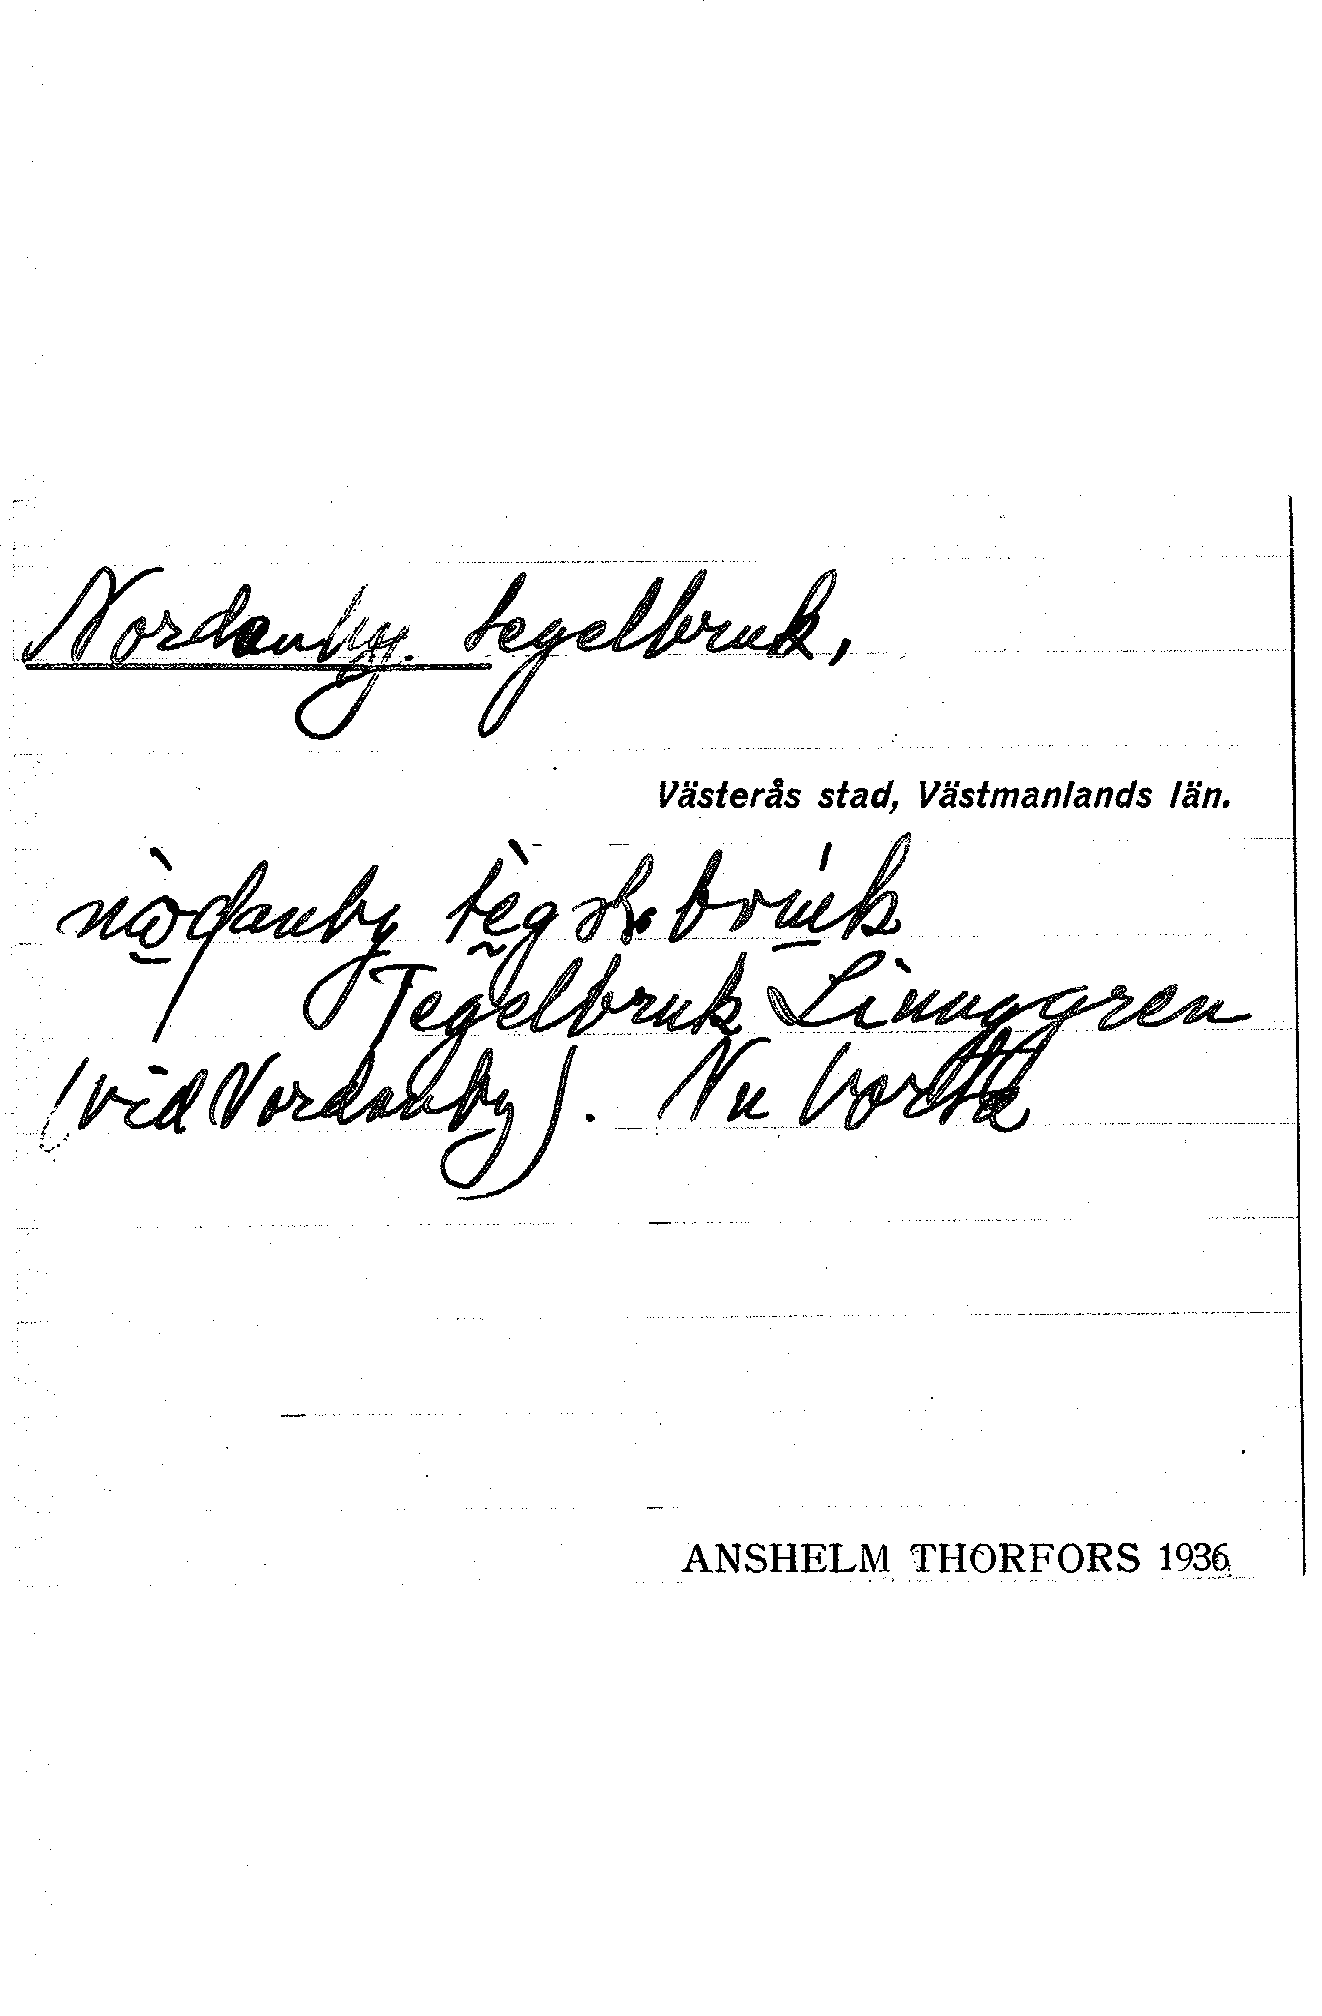 Nordanby tegelbruk,
Västerås stad, Västmanlands län.
nòdanby tègəlbrúk
Tegelbruk Linnggren
(vid Nordanby). Nu borta
ANSHELM THORFORS 1936